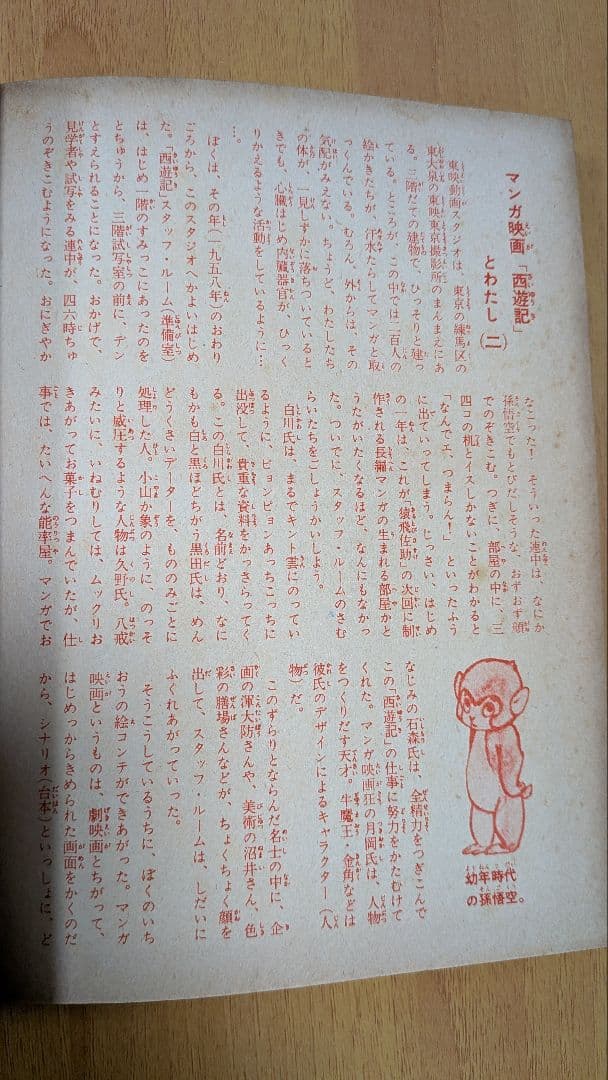 マンガ映画「西遊記」
とわたし(二)
東映動画スタジオは、東京の練馬区の
東大泉の東映東京撮影所のまんまえにあ
る。三階だての建物で、ひっそりと建っ
ている。ところが、この中では二百人の
絵かきたちが、汗水たらしてマンガと取
っくんでいる。むろん、外からは、その
気配がみえない。ちょうど、わたしたち
の体が、一見しずかに落ちついているとき
でも、心臓はじめ内臓器官が、ひっく
りかえるような活動をしているように…
…。
ぼくは、その年(一九五八年)のおわり
ごろから、このスタジオへかよいはじめ
た。「西遊記」スタッフ・ルーム(準備室)
は、はじめ一階のすみっこにあったのを
とちゅうから、三階試写室の前に、デン
とすえられることになった。おかげで、
見学者や試写をみる連中が、四六時ちゅ
うのぞきこむようになった。おにぎやか
なこった!そういった連中は、なにか
孫悟空でもとびだしそうな、おずおず顔
でのぞきこむ。つぎに、部屋の中に、三
四コの机とイスしかないことがわかると
「なんでエ、つまらん!」といったふう
に出ていってしまう。じっさい、はじめ
の一年は、これが「猿飛佐助」の次回に制
作される長編マンガの生まれる部屋かと
うたがいたくなるほど、なんにもなかっ
た。ついでに、スタッフ・ルームのさむ
らいたちをごしょうかいしよう。
白川氏は、まるでキント雲にのってい
るように、ピョンピョンあっちこっちに
出没して、貴重な資料をかっさらってく
る。この白川氏とは、名前どおり、なに
もかも白と黒ほどちがう黒田氏は、めん
どうくさいデーターを、もののみごとに
処理した人。小山か象のように、のっそ
りと威圧するような人物は久野氏。八戒
みたいに、いねむりしては、ムックリお
きあがってお菓子をつまんでいたが、仕
事では、たいへんな能率屋。マンガでお
なじみの石森氏は、全精力をつぎこんで
この「西遊記」の仕事に努力をかたむけて
くれた。マンガ映画狂の月岡氏は、人物
をつくりだす天才。牛魔王・金角などは
彼氏のデザインによるキャラクター(人
物)だ。
このずらりとならんだ名士の中に、企
画の渾大防さんや、美術の沼井さん、色
彩の膳場さんなどが、ちょくちょく顔を
出して、スタッフ・ルームは、しだいに
ふくれあがっていった。
そうこうしているうちに、ぼくのいち
おうの絵コンテができあがった。マンガ
映画というものは、劇映画とちがって、
はじめっからきめられた画面をかくのだ
から、シナリオ(台本)といっしょに、ど
幼年時代
の孫悟空。